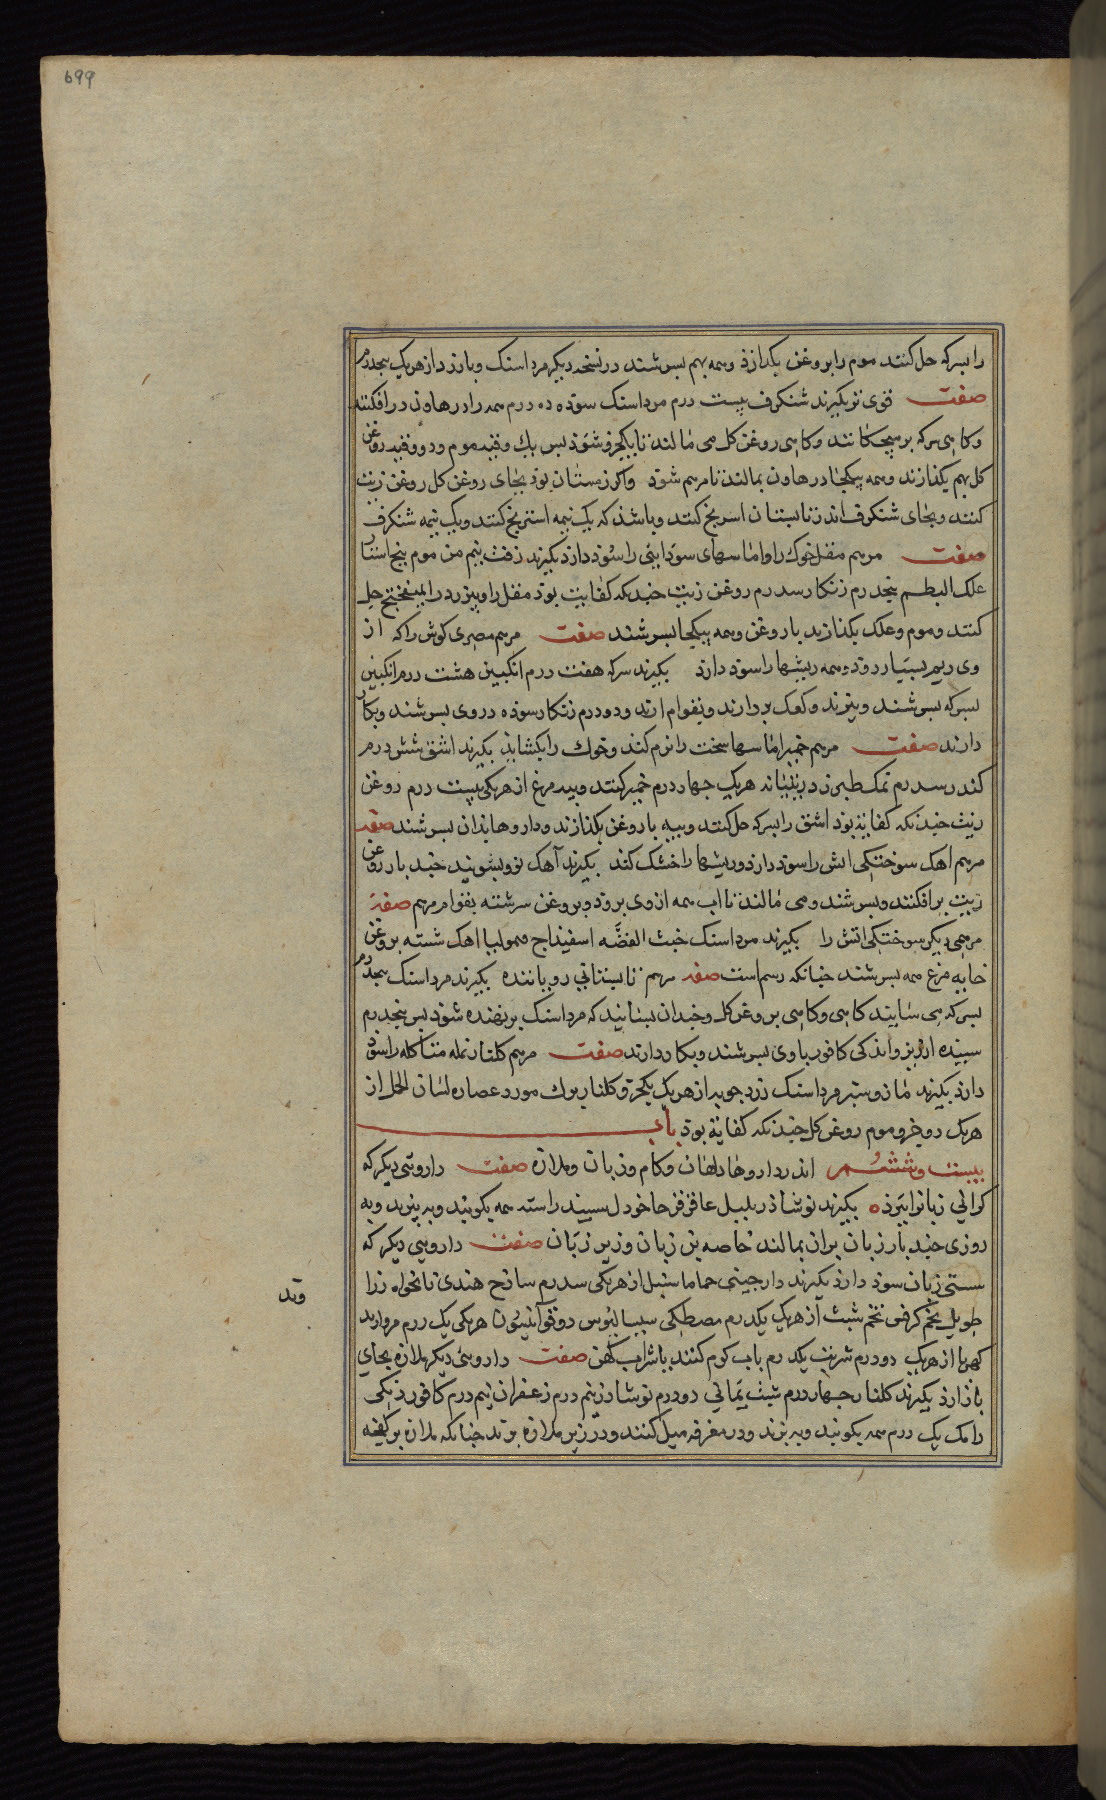 699
را بسرکه حل کنند موم را بروغن بکدازذ وهمه بهم بسرشند در نسخه دیکر مرداسنک وبارزد از هریک پنجدرم
صفت قوی تر بکیرند شنکرف بیست درم مرداسنک سوده ده درم همه را در هاون در افکنند
وکاهی سرکه بر میچکانند وکاهی روغن کل می مالند تا یکجزو شوذ پس یک وقیه موم ودو وقیه روغن
کل بهم بکدازند وهمه بیکجا در هاون بمالند تا مرهم شوذ واکر زمستان بوذ بجای روغن کل روغن زیت
کنند وبجای شنکرف اندر تابستان اسرنج کنند وباشذ که یک نیمه اسرنج کنند ویک نیمه شنکرف
صفت مرهم مقل خوک را واماسهای سودایی را سوذ دارذ بکیرند زفت نیم من موم پنج استار
علک البطم پنجدرم زنکار سدرم روغن زیت چندانکه کفایت بوذ مقل را وبیرزد را بمیفختج حل
کنند وموم وعلک بکدازند با روغن وهمه بیکجا بسرشند صفت مرهم مصری کوش را که از
وی ریم بسیار روذ وهمه ریشها را سوذ دارذ بکیرند سرکه هفت درم انکبین هشت درم انکبین
بسرکه بسرشند وبپزند وکفک بردارند وبقوام ارند ودو درم زنکار سوذه در وی بسرشند وبکار
دارند صفت مرهم خمیر اماسها سخت را نرم کند وخوک را بکشاید بکیرند اشق شش درم
کندر سدرم نمک طبرزد زبدبناند هریک چهار درم خمیر کنند وپیه مرغ از هریکی بیست درم روغن
زیت چندانکه کفایة بوذ اشق را بسرکه حل کنند وپیه با روغن بکدازند وداروها بذان بسرشند صفة
مرهم اهک سوختکی اتش را سوذ دارذ وریشها را خشک کند بکیرند آهک نو وبشویند چند بار روغن
زیت برافکنند وبسرشند ومی مالند تا اب همه از وی بروذ وبروغن سرشته بقوام مرهم صفة
مرهمی دیکر سوختکی اتش را بکیرند مرداسنک خبث الفضّه اسفیذاج قیمولیا اهک شسته بروغن
خایه مرغ همه بسرشند چنانکه رسم است صفة مرهم تابستانی رویاننده بکیرند مرداسنک پنجدرم
بسرکه می سایند کاهی وکاهی بروغن کل وچندان بسایند که مرداسنک بر نهنده شوذ پس پنجدرم
سپیده ارزیز واندکی کافور با وی بسرشند وبکار دارند صفت مرهم کلنار نمله متاکله را سوذ
دارذ بکیرند مازو سبز مرداسنک زرد چوبه از هریک یکجزو کلنار برک مورد عصاره لسان الحمل از
هریک دو جزو موم روغن کل چندانکه کفایة بوذ باب
بیست وششم اندر داروها دهان وکام وزبان وملازه صفت داروئی دیکر که
کرانی زبانرا ببرذ بکیرند نوشاذر پلپل عاقرقرحا خردل سپیند راسته همه بکوبند وبه بیزند وبه
روزی چند بار زبان بران بمالند خاصه بن زبان وزیر زبان صفت داروئی دیکر که
سستی زبان سوذ دارذ بکیرند دارچینی حماما سنبل از هریکی سدرم ساذج هندی نانخواه زرا
طویل تخم کرفس تخم شبث از هریک یکدرم مصطکی سیسالیوس دوقو انیسون هریکی یک درم مروارید
کهربا از هریک دو درم شربت یکدرم باب کرم کنند با شراب کهن صفت داروئی دیکر ملازه بجای
بازارذ بکیرند کلنار چهار درم شب یمانی دو درم نوشاذر نیم درم زعفران نیم درم کافور دنکی
رامک یک درم همه بکوبند وبه بیزند ودر مغرفه میل کنند ودر زیر ملازه بزند چنانکه ملازه بر کیفه
وبد